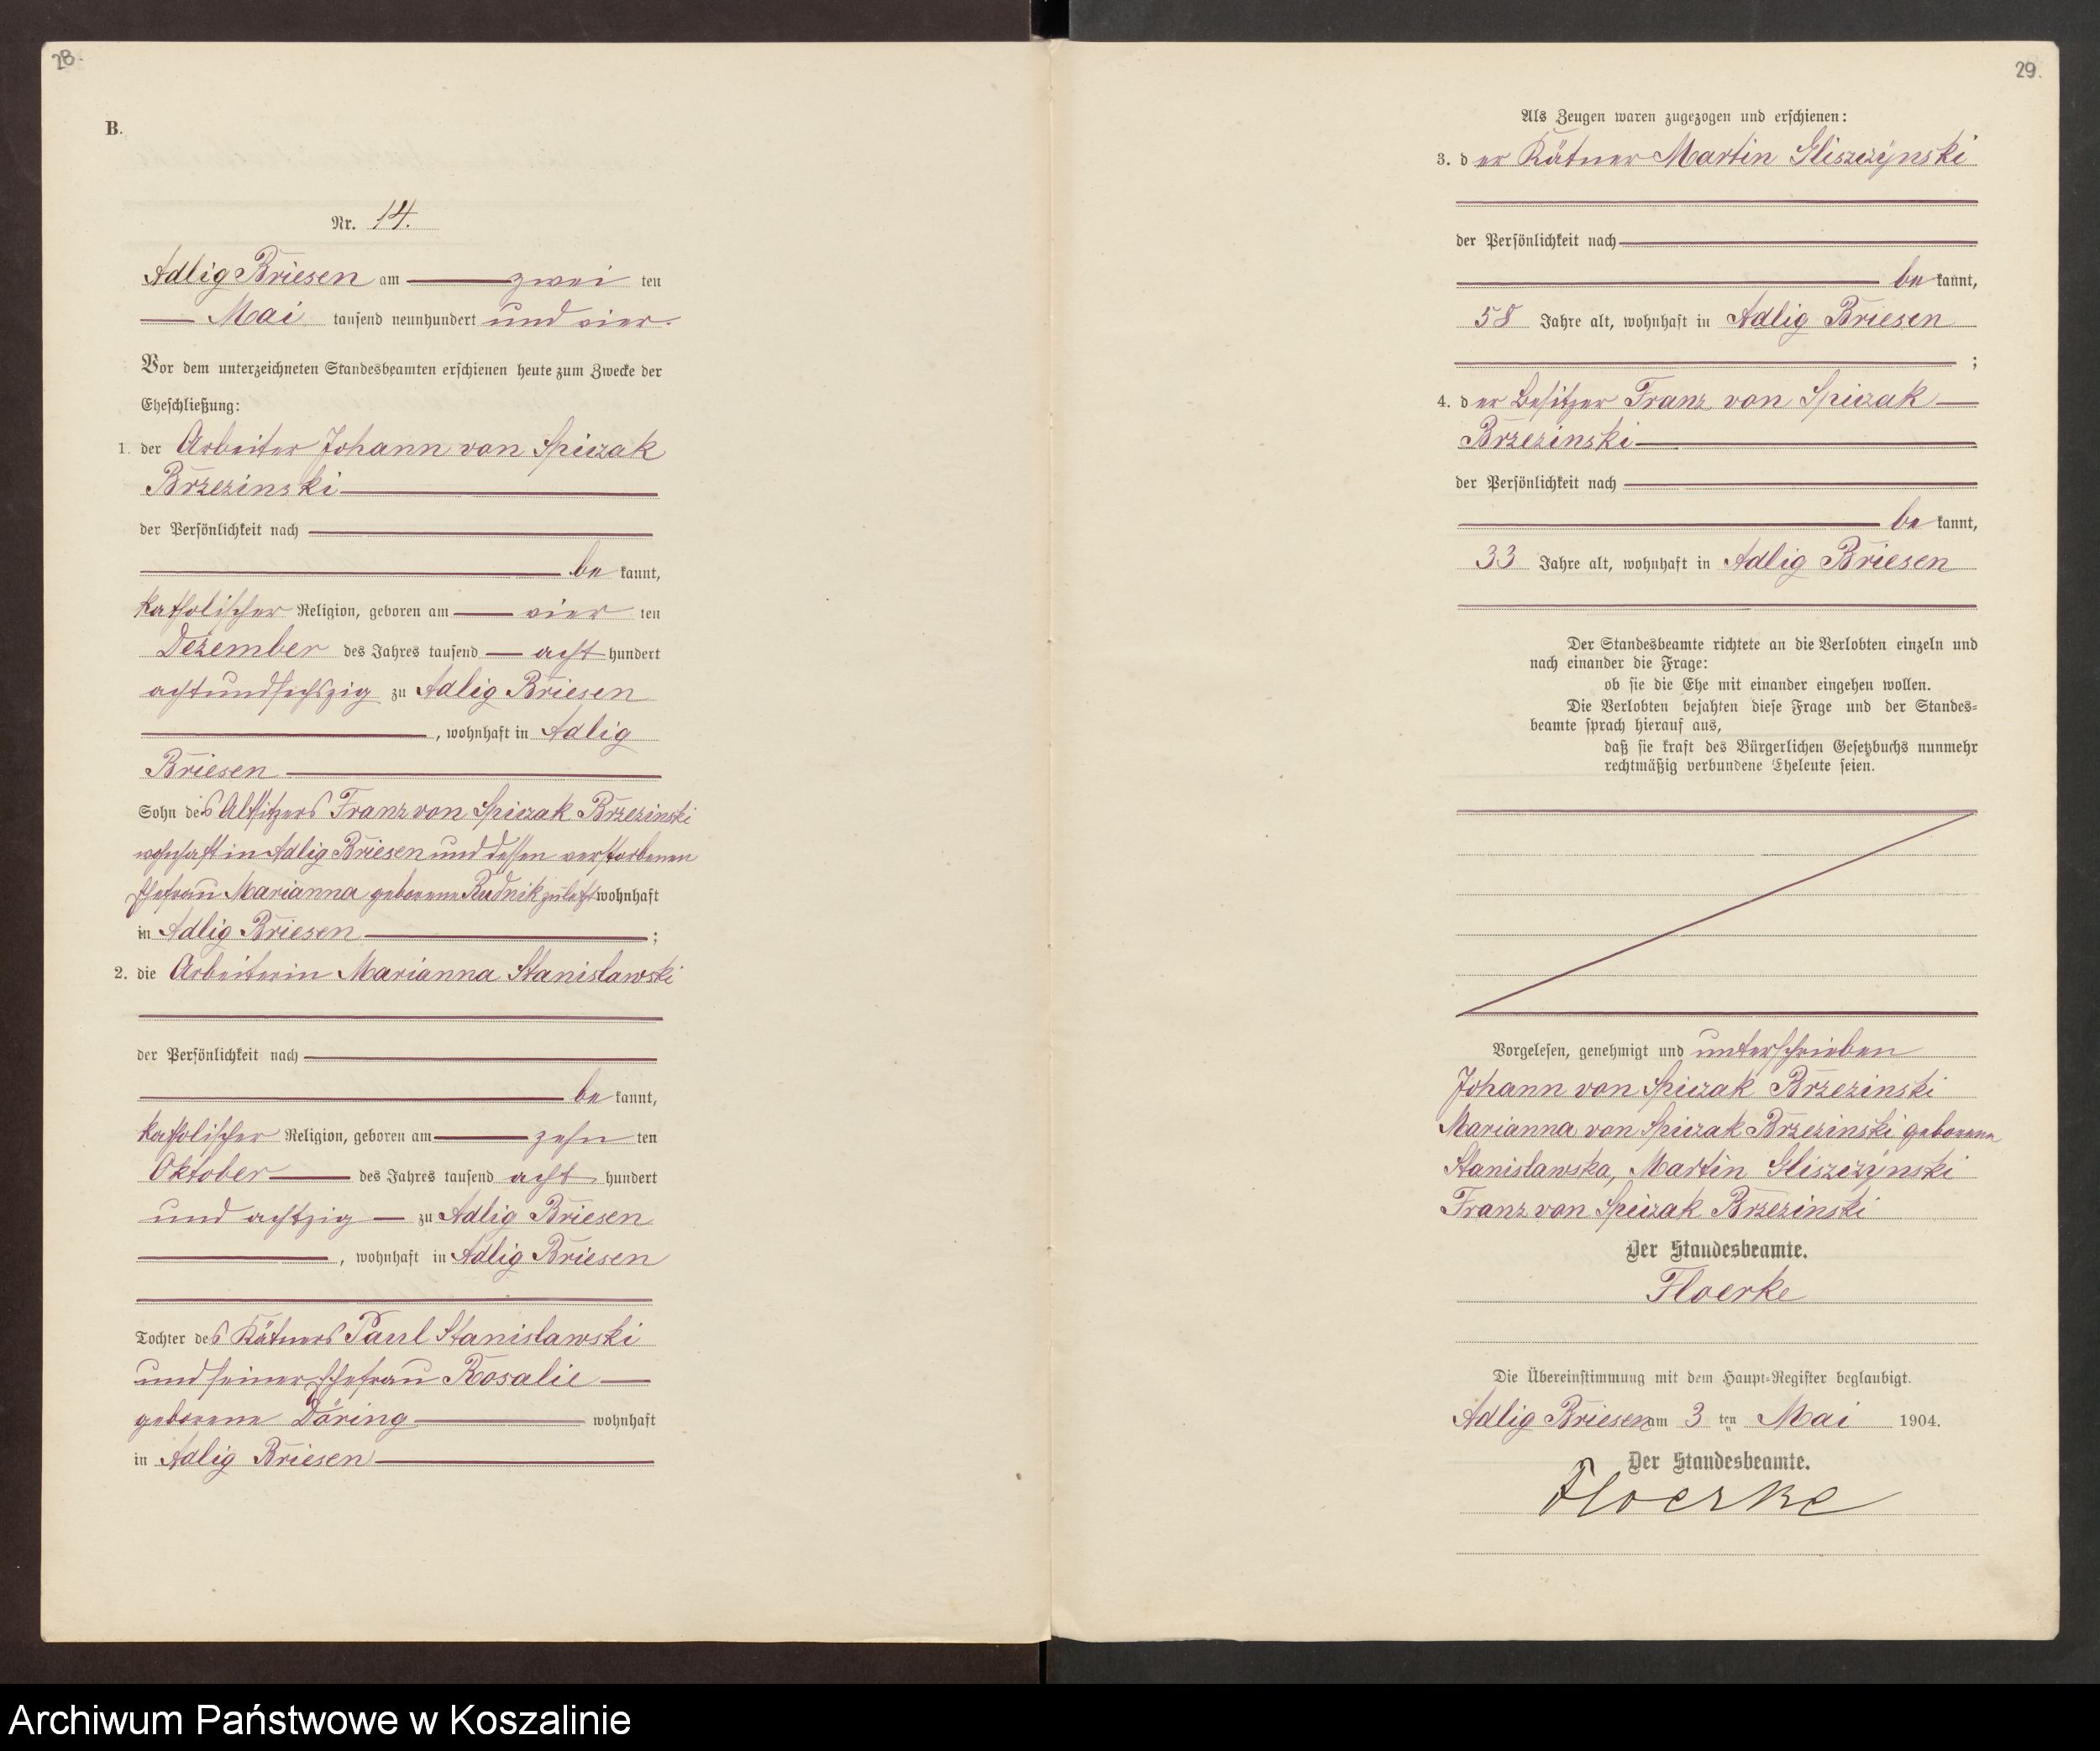 28.
B.
Nr. 14.
Adlig Briesen am zwei ten
Mai tausend neunhundert und vier.
Vor dem unterzeichneten Standesbeamten erschienen heute zum Zwecke der
Eheschließung:
1. der Arbeiter Johann von Spiczak
Brzezinski
der Persönlichkeit nach
be kannt,
katholischer Religion, geboren am vier ten
Dezember des Jahres tausend acht hundert
achtundsechszig zu Adlig Briesen
, wohnhaft in Adlig
Briesen
Sohn des Altsitzers Franz von Spiczak Brzezinski
wohnhaft in Adlig Briesen und dessen verstorbenen
Ehefrau Marianna geborene Rudnik zuletzt wohnhaft
in Adlig Briesen ;
2. die Arbeiterin Marianna Stanislawski
der Persönlichkeit nach
be kannt,
katholischer Religion, geboren am zehn ten
Oktober des Jahres tausend acht hundert
und achtzig zu Adlig Briesen
, wohnhaft in Adlig Briesen
Tochter des Kätners Paul Stanislawski
und seiner Ehefrau Rosalie
geborene Döring wohnhaft
in Adlig Briesen
29.
Als Zeugen waren zugezogen und erschienen:
3. der Kätner Martin Gliszczynski
der Persönlichkeit nach
be kannt,
58 Jahre alt, wohnhaft in Adlig Briesen
;
4. der Besitzer Franz von Spiczak
Brzezinski
der Persönlichkeit nach
be kannt,
33 Jahre alt, wohnhaft in Adlig Briesen
Der Standesbeamte richtete an die Verlobten einzeln und
nach einander die Frage:
ob sie die Ehe mit einander eingehen wollen.
Die Verlobten bejahten diese Frage und der Standes=
beamte sprach hierauf aus,
daß sie kraft des Bürgerlichen Gesetzbuchs nunmehr
rechtmäßig verbundene Eheleute seien.
Vorgelesen, genehmigt und unterschrieben
Johann von Spiczak Brzezinski
Marianna von Spiczak Brzezinski geborene
Stanislawska, Martin Gliszczynski
Franz von Spiczak Brzezinski
Der Standesbeamte.
Floerke
Die Übereinstimmung mit dem Haupt=Register beglaubigt.
Adlig Briesen am 3 ten Mai 1904.
Der Standesbeamte.
Floerke
Archiwum Państwowe w Koszalinie